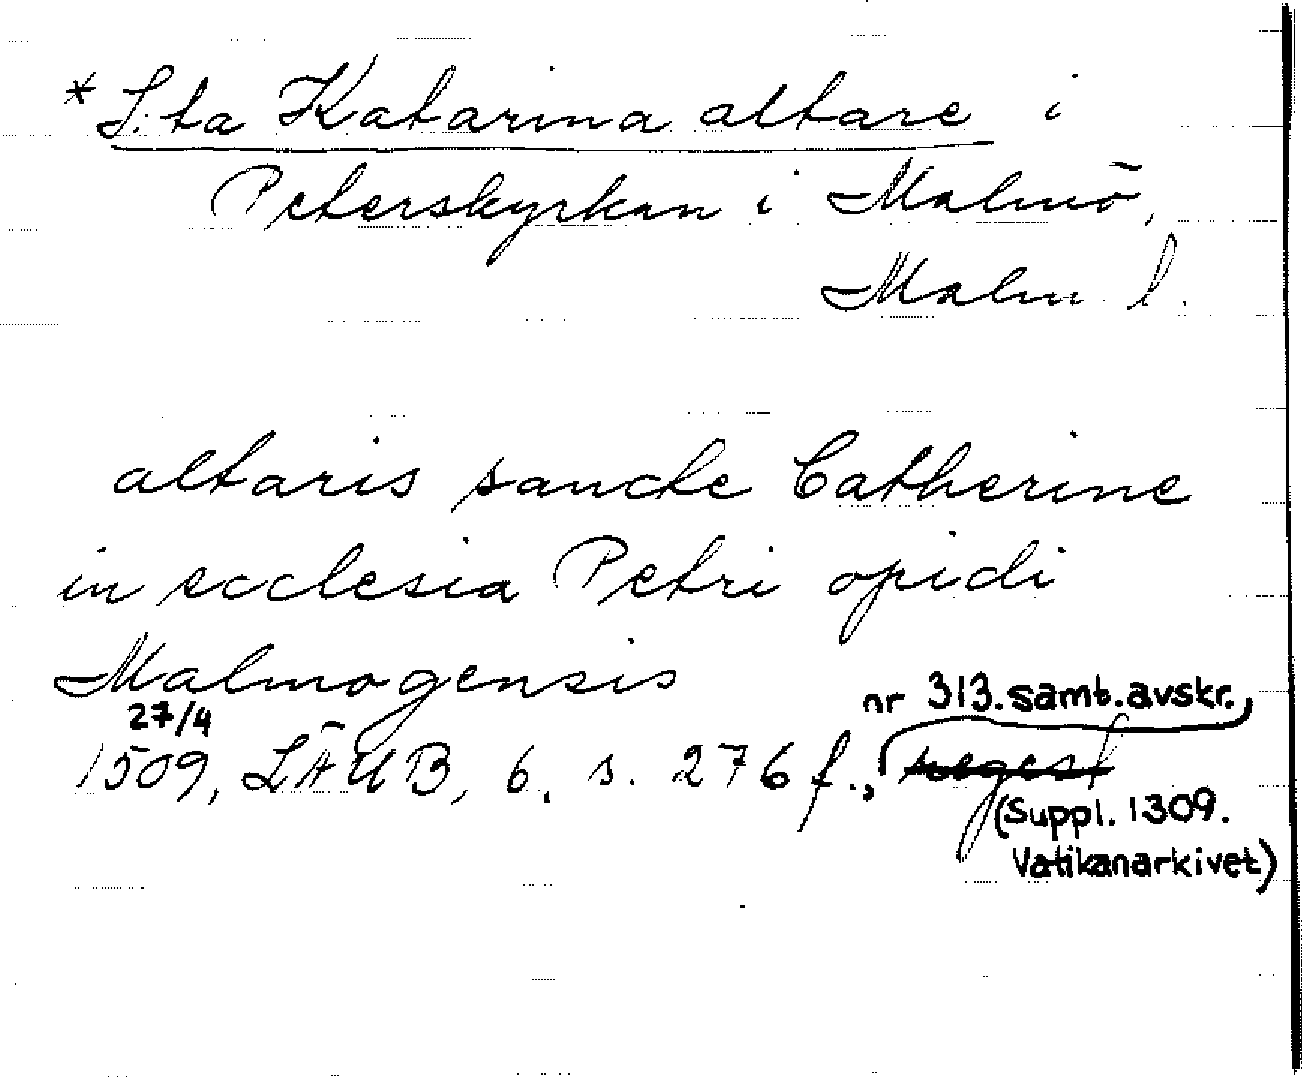 * S:ta Katarina altare i
Peterskyrkan i Malmö,
Malm l.
altaris sancte Catherine
in ecclesia Petri opidi
Malmogensis
27/4
nr 313. samt. avskr.,
1509, LÄUB, 6, s. 276 f., regest
(Suppl. 1309.
Vatikanarkivet)